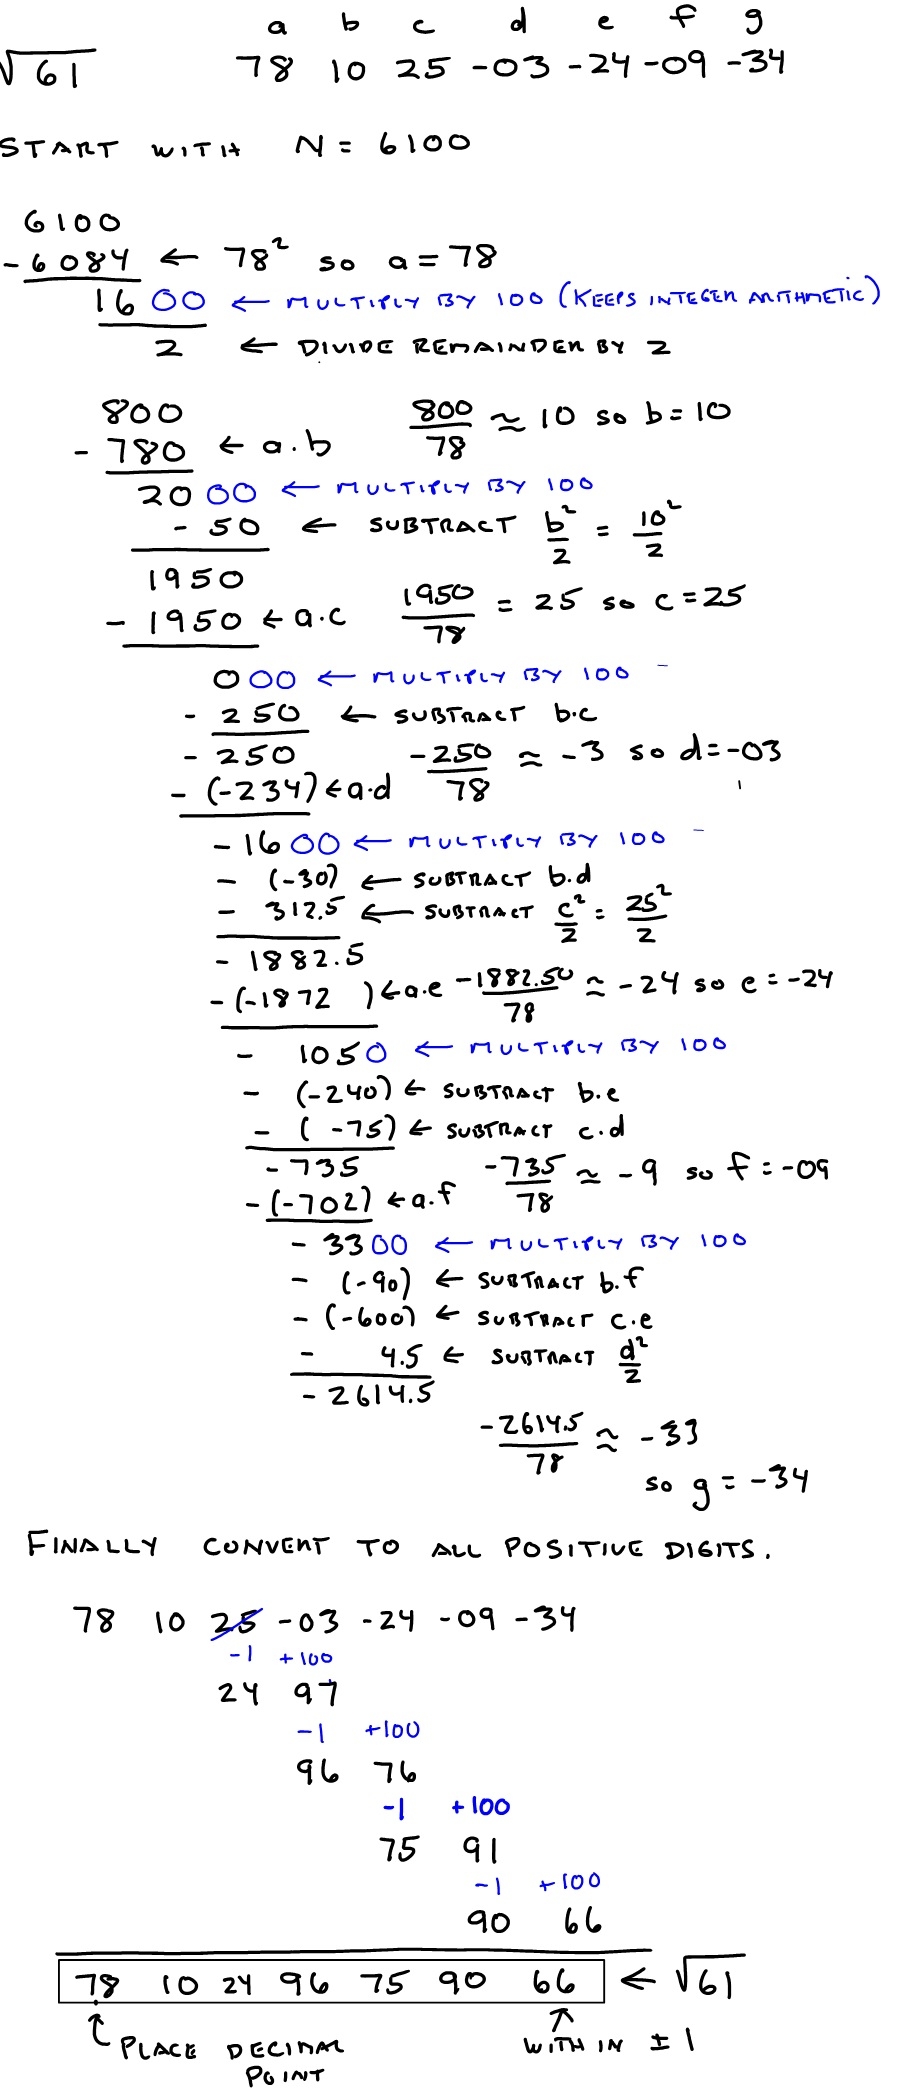 a b c d e f g
√61 78 10 25 -03 -24 -09 -34
START WITH N = 6100
6100
- 6084 ← 78² so a = 78
1600 ← MULTIPLY BY 100 (KEEPS INTEGER ARITHMETIC)
2 ← DIVIDE REMAINDER BY 2
800 800/78 ≈ 10 so b = 10
- 780 ← a.b
2000 ← MULTIPLY BY 100
- 50 ← SUBTRACT b²/2 = 10²/2
1950
- 1950 ← a.c 1950/78 = 25 so c = 25
000 ← MULTIPLY BY 100
- 250 ← SUBTRACT b.c
- 250 -250/78 ≈ -3 so d = -03
- (-234) ← a.d
- 1600 ← MULTIPLY BY 100
- (-30) ← SUBTRACT b.d
- 312.5 ← SUBTRACT c²/2 = 25²/2
- 1882.5
- (-1872 ) ← a.e -1882.50/78 ≈ -24 so e = -24
- 1050 ← MULTIPLY BY 100
- (-240) ← SUBTRACT b.e
- ( -75) ← SUBTRACT c.d
- 735 -735/78 ≈ -9 so f = -09
- (-702) ← a.f
- 3300 ← MULTIPLY BY 100
- (-90) ← SUBTRACT b.f
- (-600) ← SUBTRACT c.e
- 4.5 ← SUBTRACT d²/2
- 2614.5
-2614.5/78 ≈ -33
so g = -34
FINALLY CONVERT TO ALL POSITIVE DIGITS.
78 10 25 -03 -24 -09 -34
-1 +100
24 97
-1 +100
96 76
-1 +100
75 91
-1 +100
90 66
78 10 24 96 75 90 66 ← √61
PLACE DECIMAL POINT
WITH IN ± 1